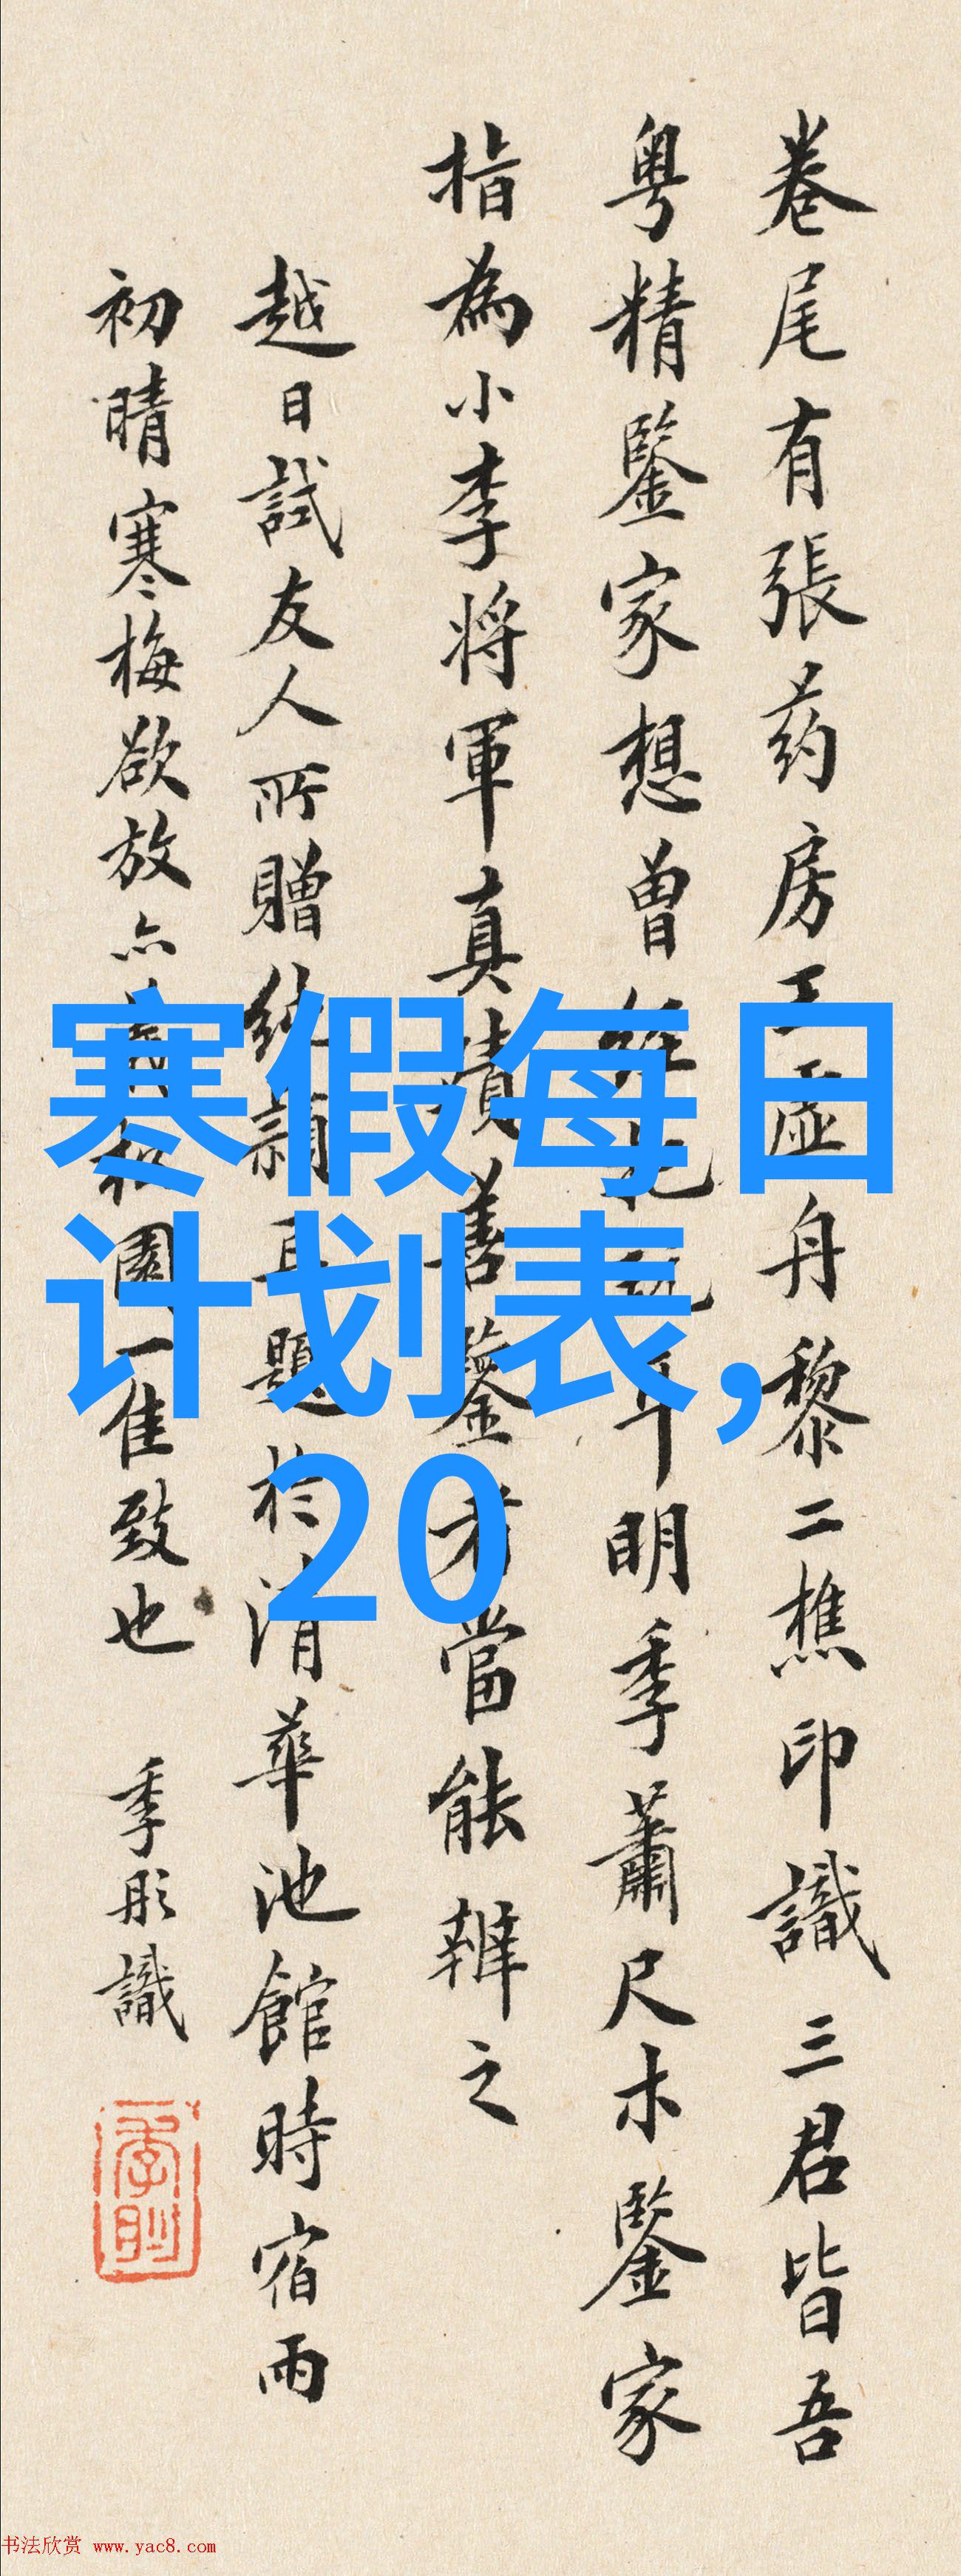 卷尾有張药房王虛舟黎二樵印識三君皆吾
粤精鑒家想曾經明季蕭尺木鑒家
指為小李将軍真蹟善鑒者當能辨之
越日試友人所贈純颖再題於清華池館時宿雨
初晴寒梅欲放亦園一佳致也 季彤識
寒假每日
计划表,
20
书法欣赏 www.yac8.com